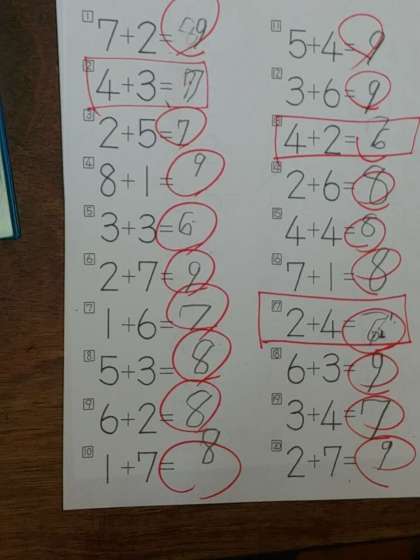 1 7+2=9
2 4+3=7
3 2+5=7
4 8+1=9
5 3+3=6
6 2+7=9
7 1+6=7
8 5+3=8
9 6+2=8
10 1+7=8
11 5+4=9
12 3+6=9
13 4+2=6
14 2+6=8
15 4+4=8
16 7+1=8
17 2+4=6
18 6+3=9
19 3+4=7
20 2+7=9